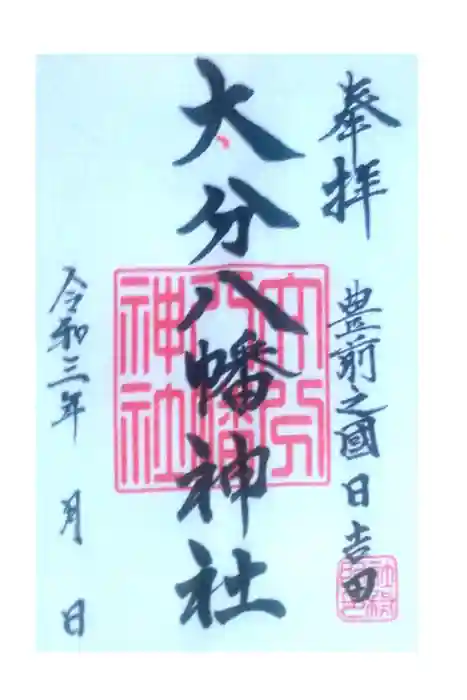 奉拝 豊前之國日吉田
大分八幡神社
令和三年 月 日
大分
八幡
神社